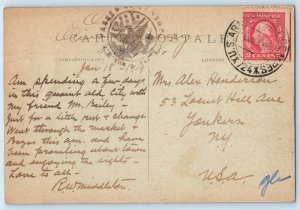 CARTE POSTALE
CORRESPONDANCE
ADRESSE
Jan
Am spending a few days
in this quaint old city with
my friend Mr. Bailey -
Just for a little rest & change
Went through the market &
Bazas this am. and have
been promenading about town
and enjoying the sights -
Love to all -
R.W. Middleton
Mrs. Alex Henderton
53 Locust Hill Ave
Yonkers
NY.
U.S.A.
2 CENTS 2